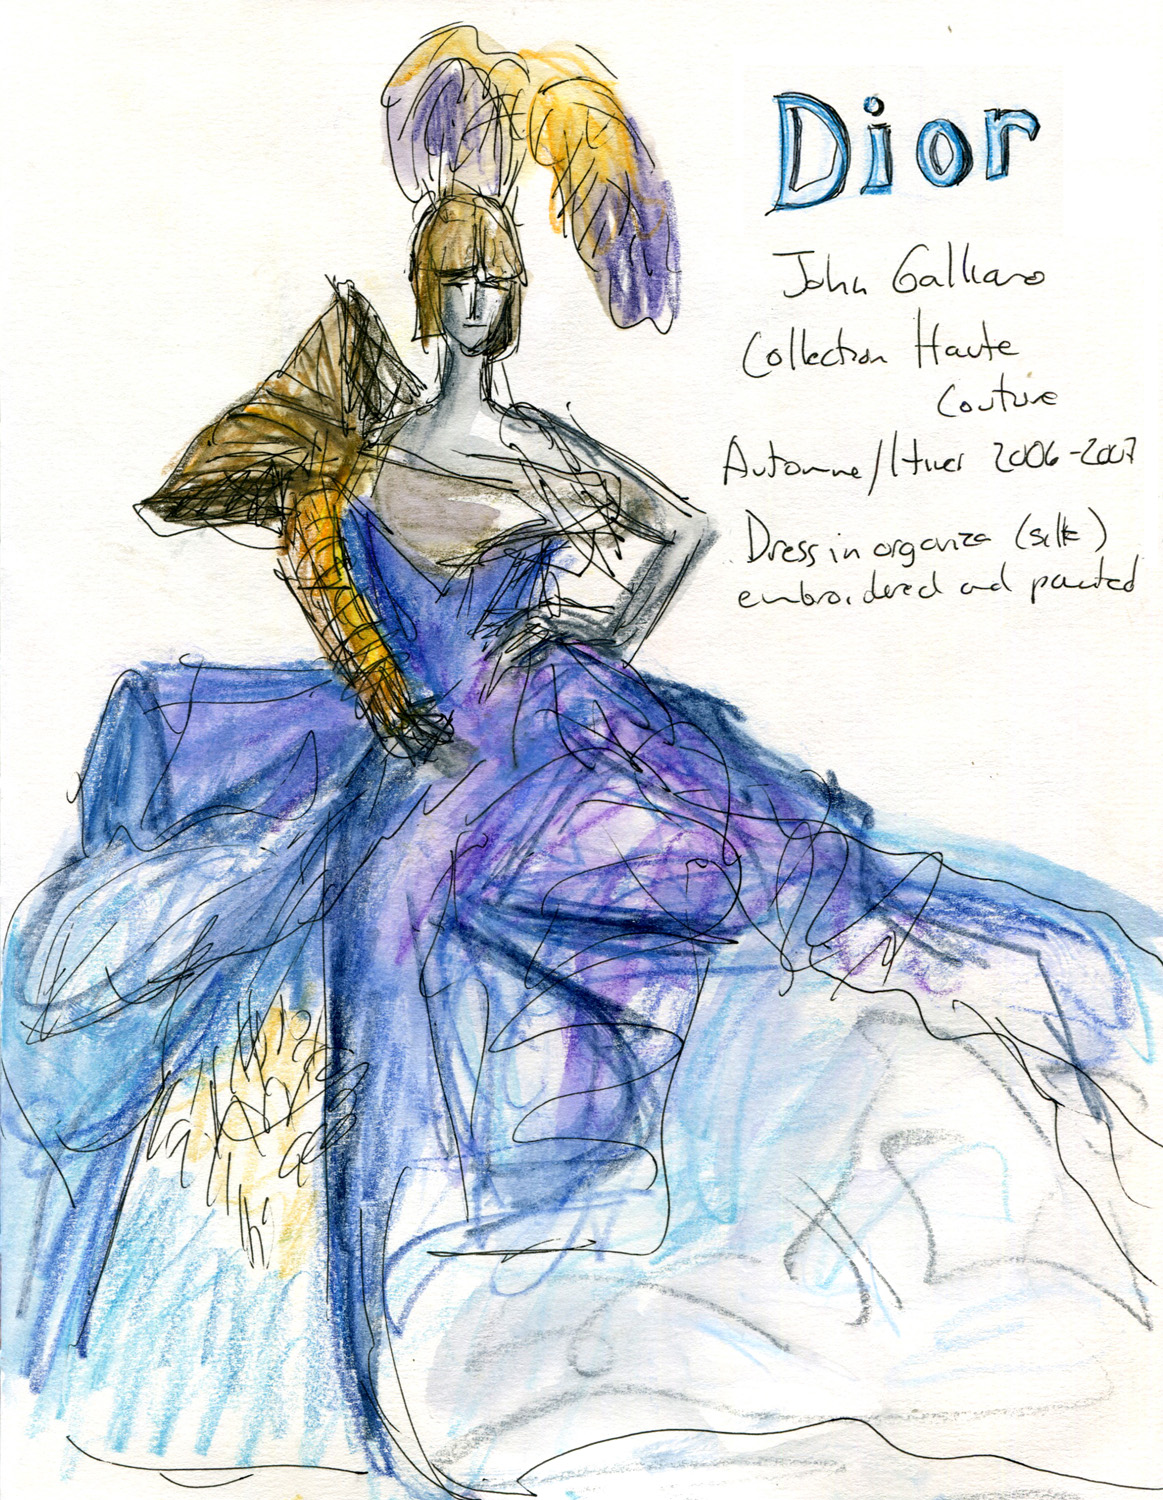 Dior
John Galliano
Collection Haute
Couture
Automne/Hiver 2006-2007
Dress in organza (silk)
embroidered and painted